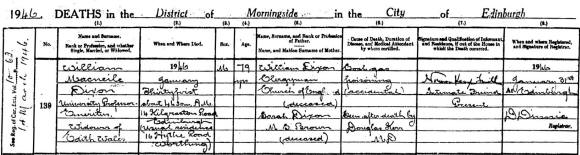 1946. DEATHS in the District of Morningside in the City of Edinburgh
(1.) (2.) (3.) (4.) (5.) (6.) (7.) (8.)
No. Name and Surname. Rank or Profession, and whether Single, Married, or Widowed.
When and Where Died.
Sex.
Age.
Name, Surname, and Rank or Profession of Father. Name, and Maiden Surname of Mother.
Cause of Death, Duration of Disease, and Medical Attendant by whom certified.
Signature and Qualification of Informant, and Residence, if out of the House in which the Death occurred.
When and where Registered, and Signature of Registrar.
139
William
Macneile
Dixon
University Professor
Emeritus,
Widower of
Edith Wales
1946
January
Thirtyfirst
about 4h 30m A.M.
16 Kilgraston Road
Edinburgh
(usual residence
16 Hythe Road
Worthing)
M
79
yrs
William Dixon
Clergyman
Church of England
(deceased)
Sarah Dixon
M. S. Brown
(deceased)
Coal gas
poisoning
(accidental)
Seen after death by
Douglas Kerr
M.D.
Intimate Friend
Present
1946
January 31st
At Edinburgh
Registrar.